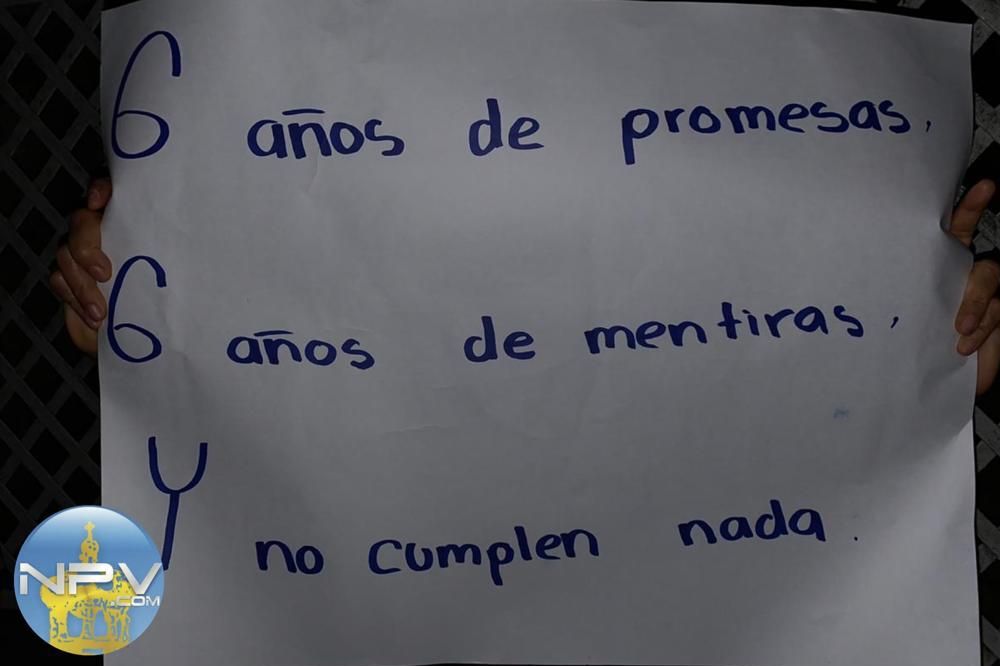 6 años de promesas,
6 años de mentiras,
Y no cumplen nada.
NPV
.COM